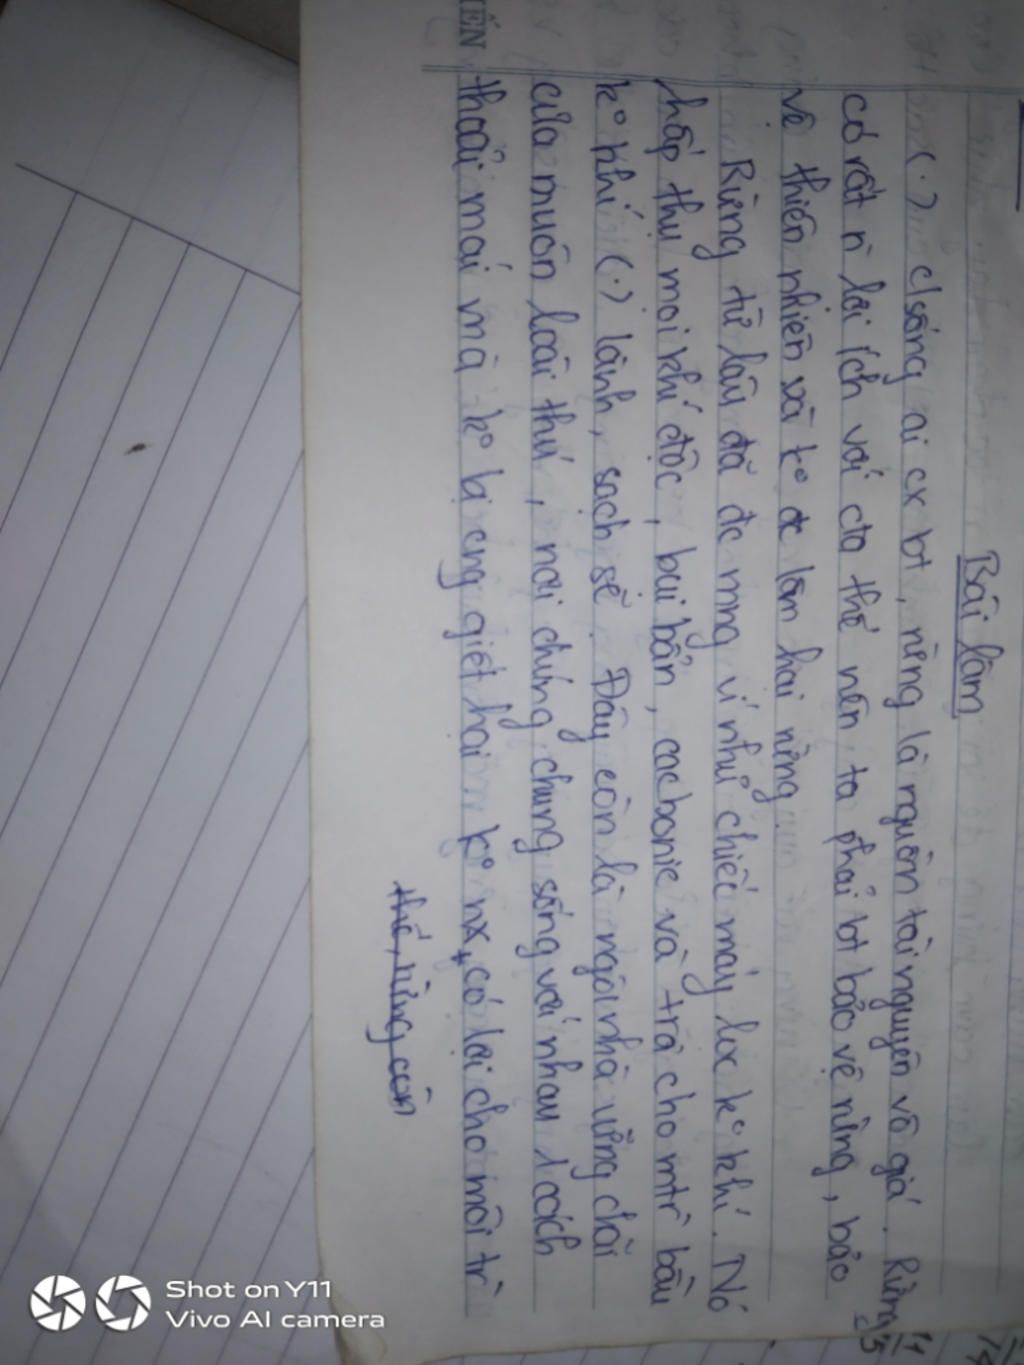 Bài làm
(.) c/sống ai cx bt, rừng là nguồn tài nguyên vô giá. Rừng
có rất n lợi ích với cta thế nên ta phải bt bảo vệ rừng, bảo
vệ thiên nhiên và ko đc làm hại rừng
Rừng từ lâu đã đc mng ví như chiếc máy lọc ko khí. Nó
hấp thụ mọi khí độc, bụi bẩn, cacbonic và trả cho mtr bầu
ko khí (.) lành, sạch sẽ. Đây còn là ngôi nhà vững chãi
của muôn loài thú, nơi chúng chung sống với nhau 1 cách
thoải mái mà ko bị cng giết hại ko nx, có lợi cho môi tr
thế, rừng còn
ỀN
Shot on Y11
Vivo AI camera